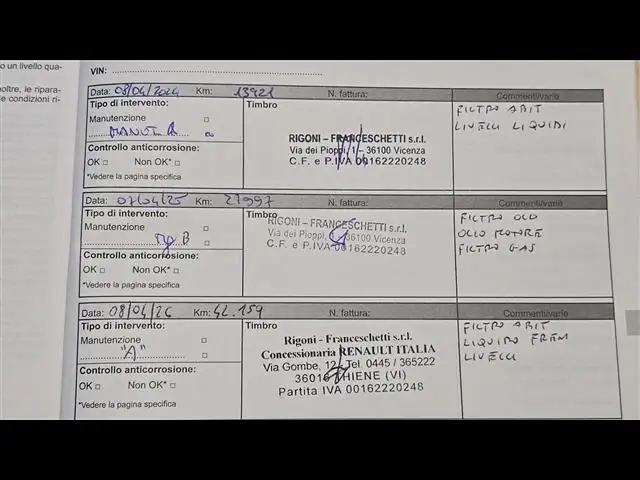 o un livello qua-
noltre, le ripara-
le condizioni ri-
VIN:
Data: 08/04/2024 Km: 13921 N. fattura: Commenti/varie
Tipo di intervento: Timbro FILTRO ABIT
Manutenzione LIVELLI LIQUIDI
MANUT A
RIGONI – FRANCESCHETTI s.r.l.
Via dei Pioppi, 1 – 36100 Vicenza
C.F. e P.IVA 00162220248
Controllo anticorrosione:
OK Non OK*
*Vedere la pagina specifica
Data: 07/04/25 Km: 27997 N. fattura: Commenti/varie
Tipo di intervento: Timbro FILTRO OLIO
Manutenzione OLIO MOTORE
B FILTRO GAS
RIGONI – FRANCESCHETTI s.r.l.
Via dei Pioppi, 1 – 36100 Vicenza
C.F. e P.IVA 00162220248
Controllo anticorrosione:
OK Non OK*
*Vedere la pagina specifica
Data: 08/04/26 Km: 42.159 N. fattura: Commenti/varie
Tipo di intervento: Timbro FILTRO ABIT
Manutenzione LIQUIDO FRENI
"A" LIVELLI
Rigoni - Franceschetti s.r.l.
Concessionaria RENAULT ITALIA
Via Gombe, 12 Tel. 0445 / 365222
36016 THIENE (VI)
Partita IVA 00162220248
Controllo anticorrosione:
OK Non OK*
*Vedere la pagina specifica